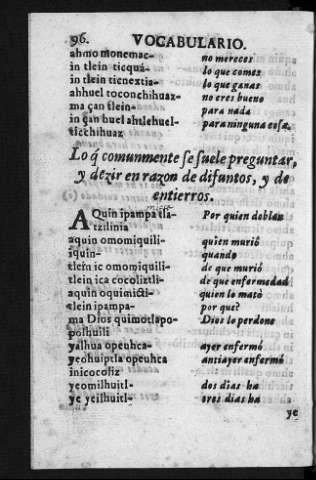 96. VOCABULARIO.
ahmo monemac- no mereces
in tlein ticquá- lo que comes
in tlein ticnextia- lo que ganas
ahhuel toconchihuaz- no eres bueno
ma çan tlein- para nada
in çan huel ahtlehuel- para ninguna cosa.
ticchihuaz
Lo q̃ comunmente se suele preguntar,
y dezir en razon de difuntos, y de
entierros.
AQuin ipampa tla- Por quien doblan
tzilinia
aquin omomiquili- quien murió
iquin- quando
tlein ic omomiquili- de que murió
tlein ica cocoliztli- de que enfermedad
aquin oquimicti- quien lo matò
tlein ipampa- por que?
ma Dios quimotlapo- Dios lo perdone
polhuili
yalhua opeuhca- ayer enfermó
yeohuiptla opeuhca antiayer enfermó
inicocoliz
yeomilhuitl- dos dias ha
ye yeilhuitl- tres dias ha
ye